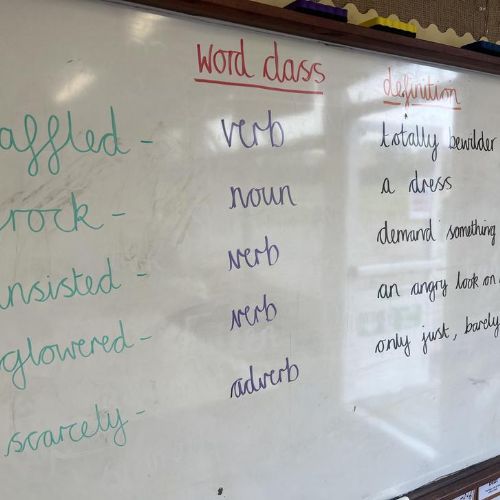 word class definition
affled - verb totally bewilder
rock - noun a dress
nsisted - verb demand something
glowered - verb an angry look on
scarcely - adverb only just, barely